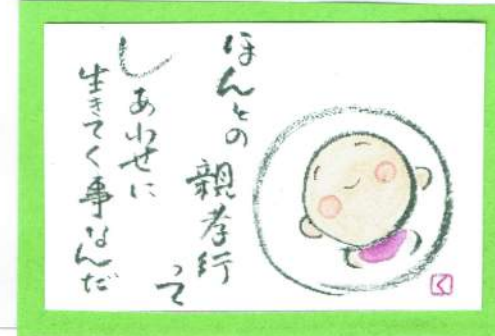 ほんとの
親孝行
って
しあわせに
生きてく事なんだ
く